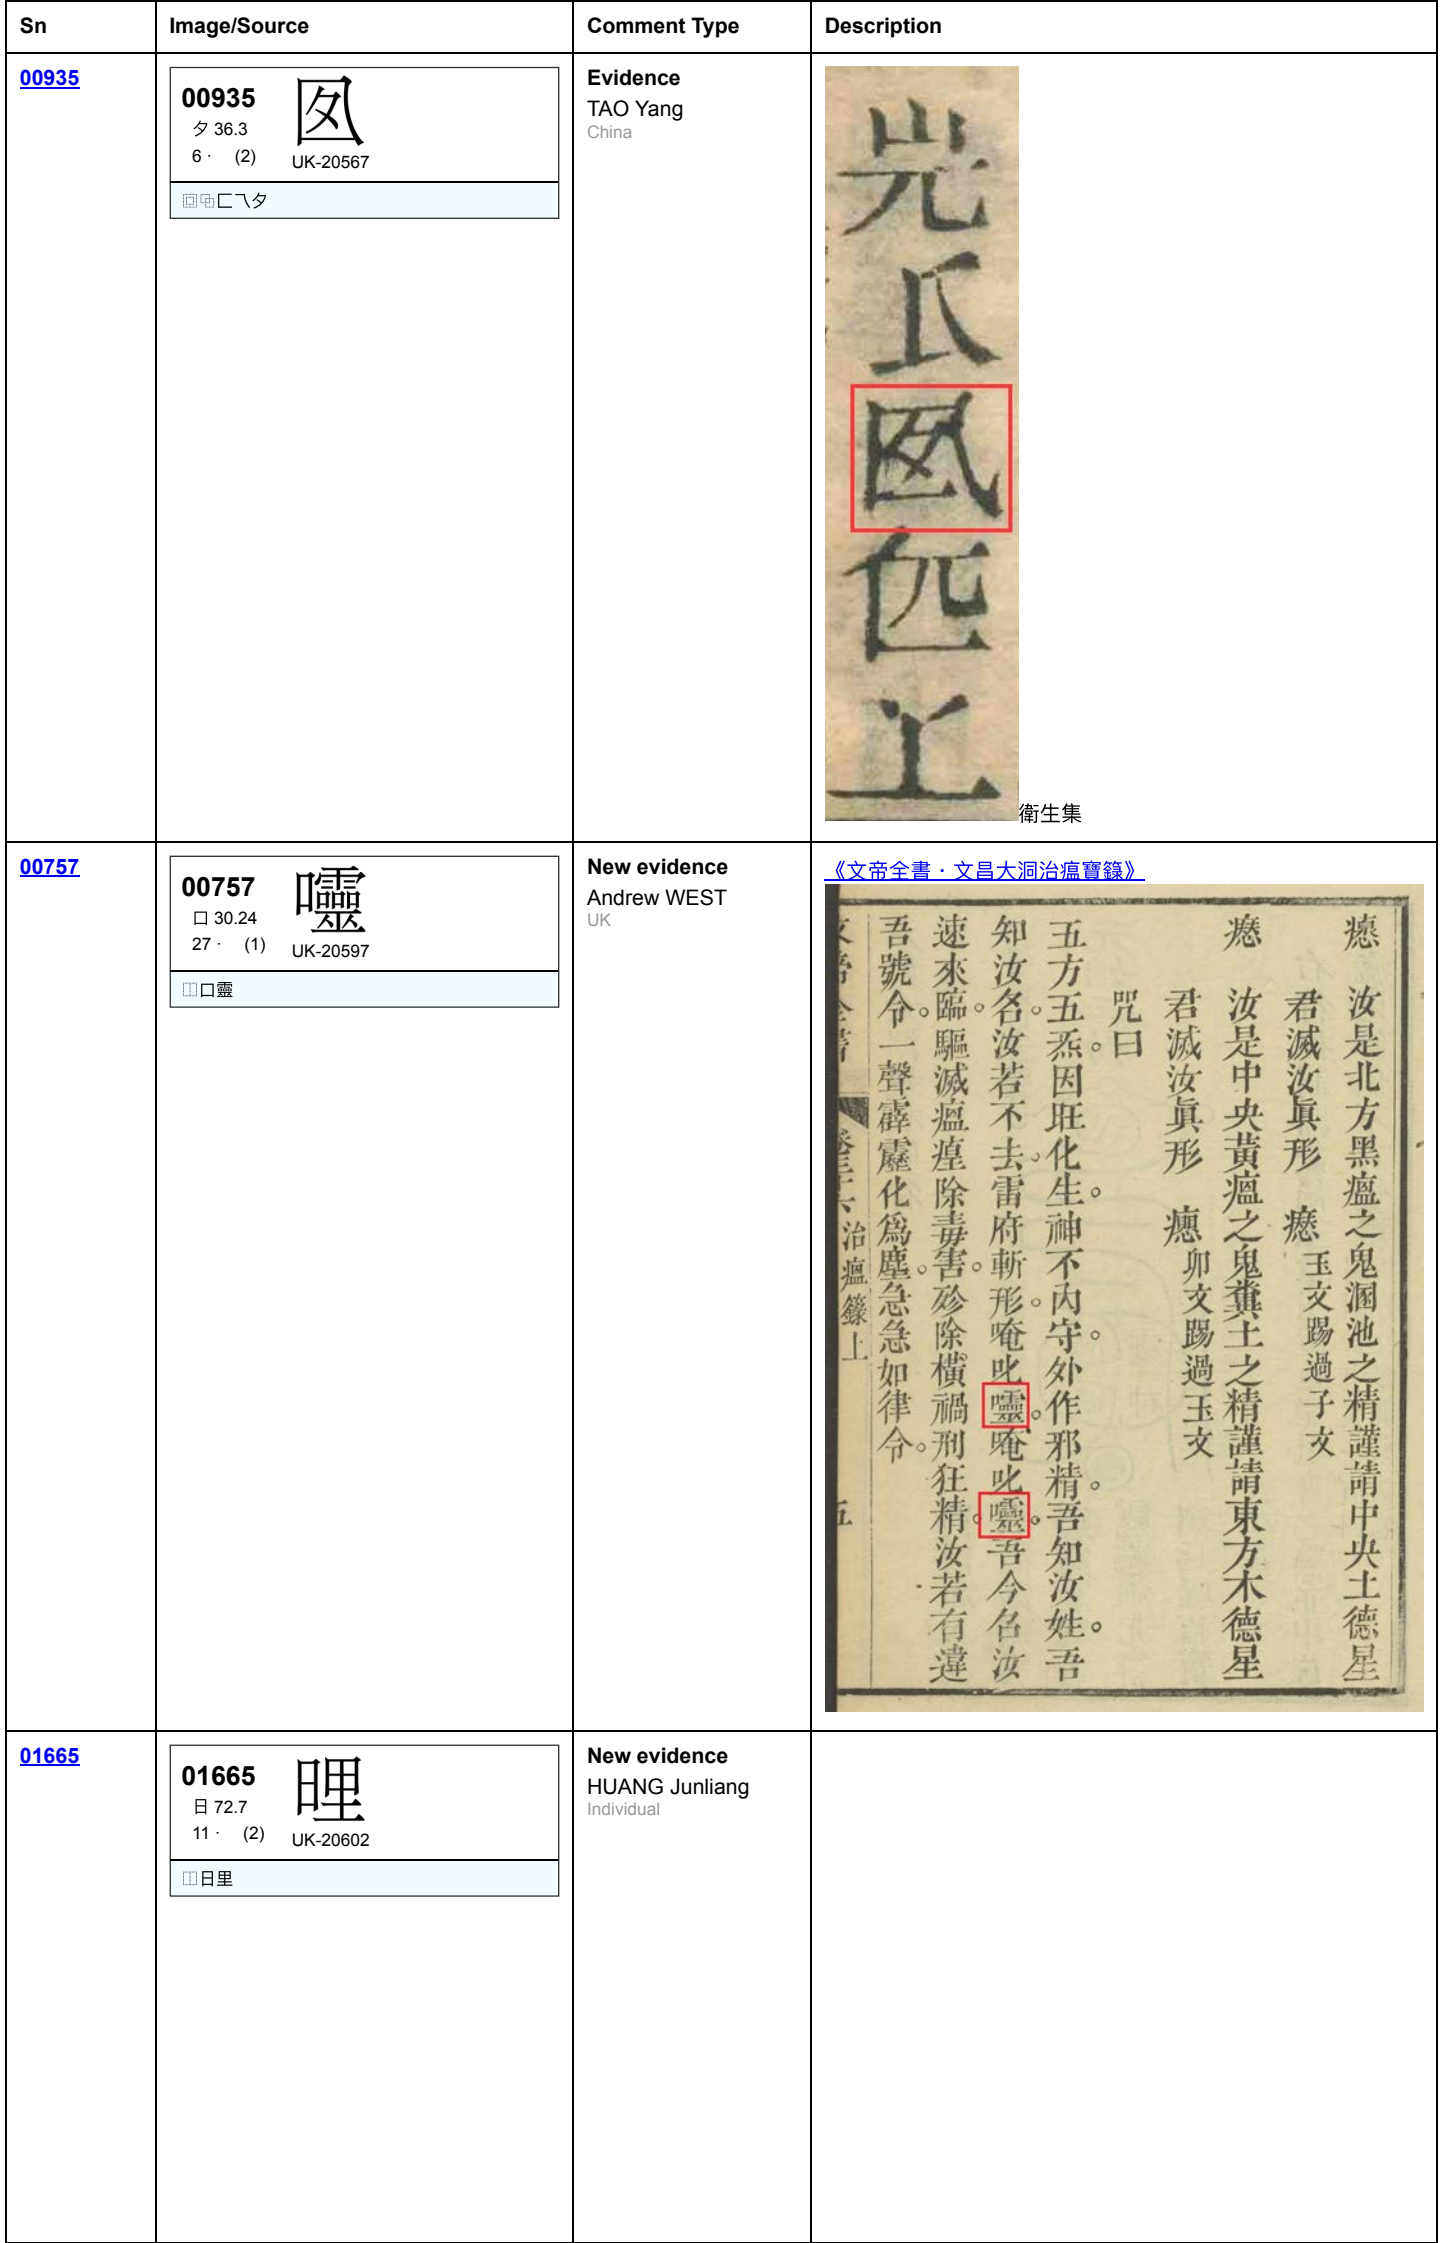 Sn Image/Source Comment Type Description
00935
00935
夕 36.3
6 · (2)
UK-20567
⿴⿻匚⺄夕
Evidence
TAO Yang
China
氏
上
衛生集
00757
00757
口 30.24
27 · (1)
UK-20597
⿰口靈
New evidence
Andrew WEST
UK
《文帝全書・文昌大洞治瘟寶籙》
汝是北方黑瘟之鬼溷池之精謹請中央土德星
君滅汝眞形 玉文踢過子文
汝是中央黃瘟之鬼糞土之精謹請東方木德星
君滅汝眞形 卯文踢過玉文
咒曰
五方五炁。因旺化生。神不內守。外作邪精。吾知汝姓。吾
知汝名。汝若不去。雷府斬形。唵叱囗靈。唵叱囗靈。吾今名汝
速來臨。驅滅瘟瘽除毒害。殄除橫禍刑狂精。汝若有違
吾號令。一聲霹靂化爲塵。急急如律令。
治瘟籙上
五
01665
01665
日 72.7
11 · (2)
UK-20602
⿰日里
New evidence
HUANG Junliang
Individual